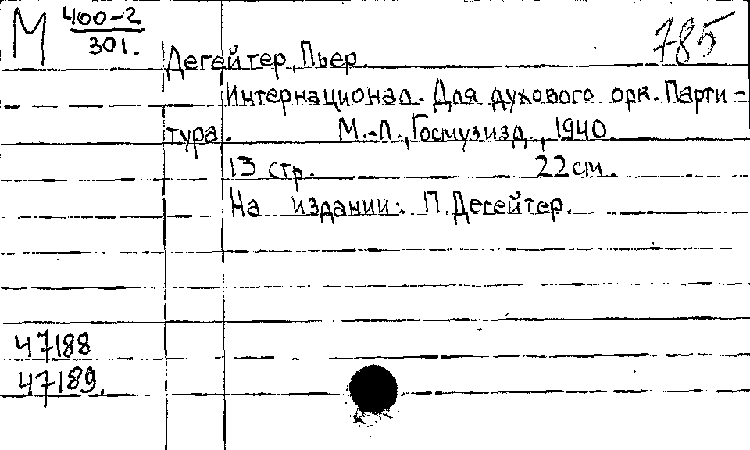 М 400-2
301.
785
Дегейтер, Пьер
Интернационал. Для духового орк. Парти-
тура. М.-Л., Госмузизд., 1940
13 стр. 22 см.
На издании: П. Дегейтер.
47188
47189.